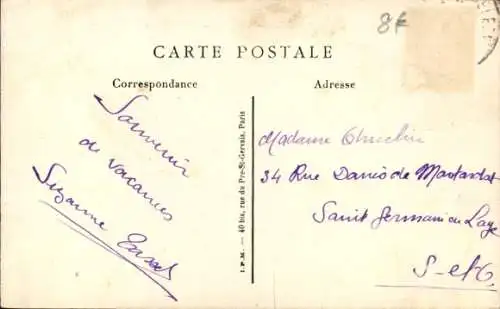 8€
CARTE POSTALE
Correspondance
Adresse
Souvenir
de vacances
Suzanne
I.P.M. — 40 bis, rue du Pré-St-Gervais, Paris
Madame
34 Rue Danès de Montardat
Saint Germain en Laye
S-et-O